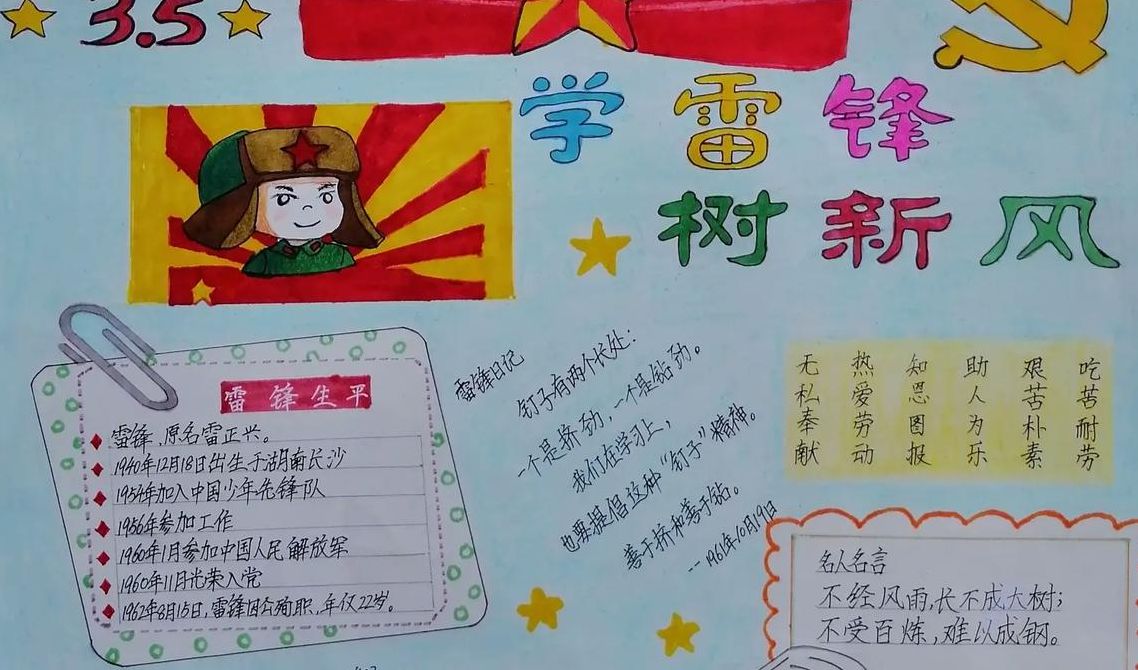 3.5
学雷锋
树新风
雷锋生平
雷锋,原名雷正兴。
1940年12月18日出生于湖南长沙
1954年加入中国少年先锋队
1956年参加工作
1960年1月参加中国人民解放军
1960年11月光荣入党
1962年8月15日,雷锋因公殉职,年仅22岁。
雷锋日记
钉子有两个长处:
一个是挤劲,一个是钻劲。
我们在学习上,
也要提倡这种“钉子”精神。
善于挤和善于钻。
--1961年10月19日
无私奉献
热爱劳动
知恩图报
助人为乐
艰苦朴素
吃苦耐劳
名人名言
不经风雨,长不成大树;
不受百炼,难以成钢。